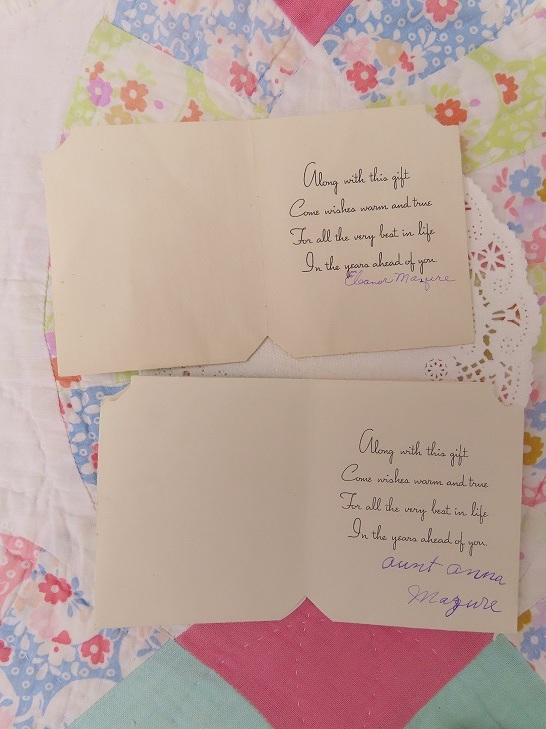 Along with this gift
Come wishes warm and true
For all the very best in life
In the years ahead of you.
Eleanor Mazure
Along with this gift
Come wishes warm and true
For all the very best in life
In the years ahead of you.
aunt anna
Mazure